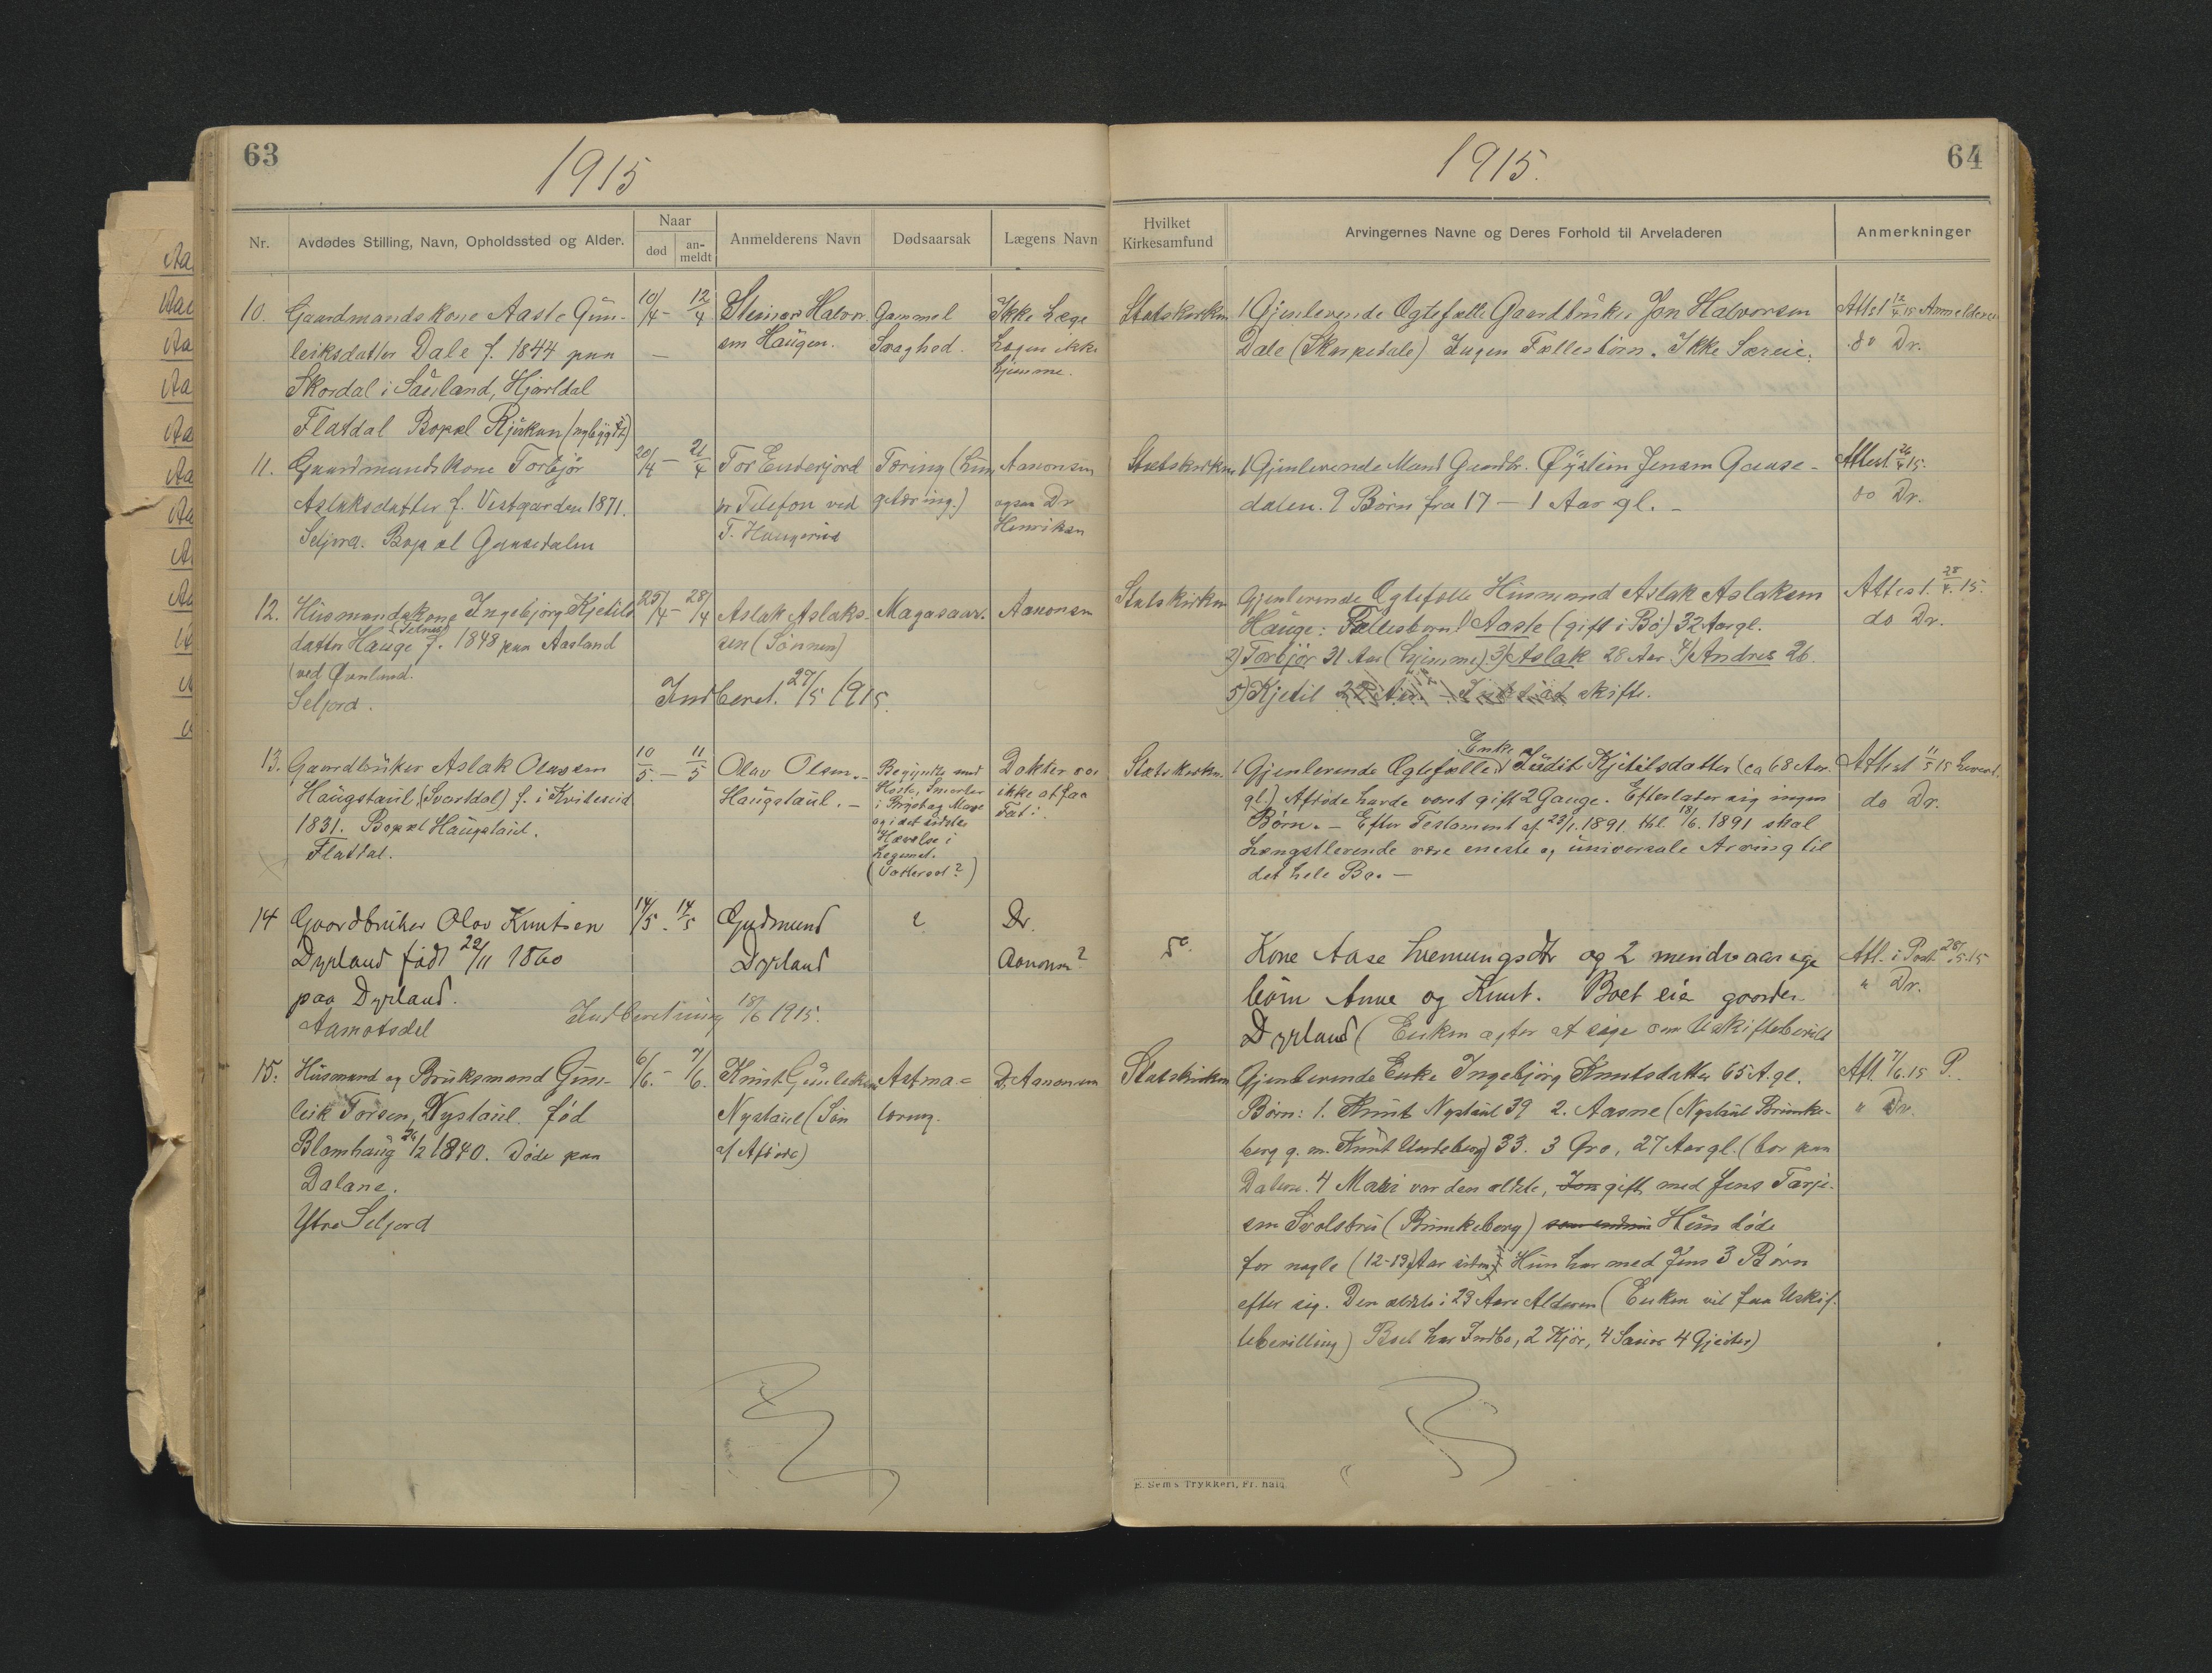 63
1915
Nr.
Avdødes Stilling, Navn, Opholdssted og Alder.
Naar
død
an-
meldt
Anmelderens Navn
Dødsaarsak
Lægens Navn
10. Gaardmandskone Aaste Gun-
leiksdatter Dale f. 1844 paa
Skordal i Sauland, Hjartdal
Flatdal Bopæl Rjukan (nybygdt)
10/4 - 12/4
Steinar Halvor
sen Haugen.
Gammel
Svaghed.
Ikke Læge
Lægen ikke
hjemme.
11. Gaardmandskone Torbjør
Aslaksdatter f. Vestgarden 1871.
Seljord. Bopæl Gausedalen
20/4 - 21/4
Tor Enderjord
pr Telefon ved
T. Haugerud
Tæring (Lun
getæring.)
Aanonsen
ogsaa Dr
Henriksen
12. Husmandskone Ingebjørg Kjetils
datter Hauge f. 1848 paa Aasland
(ved Ørnlund.
Seljord.
25/4 - 28/4
Aslak Aslaks-
sen (Sønnen)
Magasaar.
Aanonsen
Indberet. 27/5 1915.
13. Gaardbruker Aslak Olavsen
Haugstaul (Svartdal) f. i Kviteseid
1831. Bopæl Haugstaul.
Flatdal.
10/5. - 11/5
Olav Olsen.
Haugstaul. -
Begyndte med
Hoste, Smerter
i Bryst og Mave
og i det sidste
Hævelse i
Legemet.
(Vattersot?)
Dokter var
ikke at faa
Fat i.
14 Gaardbruker Olav Knutsen
Dyrland født 22/11 1860
paa Dyrland.
Aamotsdal
14/5. 14/5
Gudmund
Dyrland
?
Dr.
Aanonsen?
Indberetning 18/6 1915.
15. Husmand og Bruksmand Gun-
leik Torsen, Nystaul. fød
Blomhaug 26/2 1840. Døde paa
Dalane.
Ytre Seljord
6/6. - 7/6.
Knut Gunleiksen
Nystaul (Søn
af Afdøde)
Astma-
tæring.
Dr. Aanonsen
64
1915.
Hvilket
Kirkesamfund
Arvingernes Navne og Deres Forhold til Arveladeren
Anmerkninger
Statskirken
1 Gjenlevende Ægtefælle Gaardbruker Jon Halvorsen
Dale (Skarpedale) Ingen Fællesbørn. Ikke Særeie.
Attest 12/4 15 Anmelderen
do Dr.
Statskirken
1 Gjenlevende Mand Gaardbr. Øystein Jensen Gause-
dalen. 9 Børn fra 17 - 1 Aar gl. -
Attest. 26/4 15.
do Dr.
Statskirken
Gjenlevende Ægtefælle Husmand Aslak Aslaksen
Hauge: Fællesbørn 1) Aaste (gift i Bø) 32 Aar gl.
2) Torbjør 31 Aar (hjemme) 3) Aslak 28 Aar 4) Andres 26.
5) Kjetil 22 Aar skifte.
Attest. 28/4. 15.
do Dr.
Statskirken.
1 Gjenlevende Ægtefælle Enke Judit Kjetilsdatter (ca 68 Aar
gl.) Afdøde havde været gift 2 Gange. Efterlater sig ingen
Børn. - Efter Testament af 23/1. 1891 thl. 18/6. 1891 skal
Længstlevende være eneste og universale Arving til
det hele Bo. -
Attest 11/5 15 Leveret.
do Dr.
do.
Kone Aase Lvemungsdtr og 2 mindreaarige
børn Anne og Knut. Boet eier gaarden
Dyrland (Enken agter at søge om Uskiftebevild
Att. i Post 28/5.15
" Dr.
Statskirken
Gjenlevende Enke Ingebjørg Knutsdatter 65 A. gl.
Børn: 1. Knut Nystaul 39 2. Aasne (Nystaul Brunke-
berg g. m. Knut Undeberg) 33. 3 Gro, 27 Aar gl. (bor paa
Dalane. 4 Mari var den ældste, Jon gift med Jens Tarje-
sen Svolsbru (Brunkeberg) som endnu Hun døde
for nogle (12-13) Aar siden Hun har med Jens 3 Børn
efter sig. Den ældste i 23 Aars Alderen (Enken vil faa Uskif-
tebevilling) Boet har Indbo, 2 Kjør, 4 Sauer 4 Gjeiter)
Att. 7/6.15 P.
" Dr.
E. Sem's Trykkeri, Fr.hald